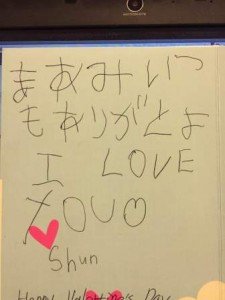 まあみいつ
もありがとよ
I LOVE
YOU♡
Shun
Happy Valentine's Day